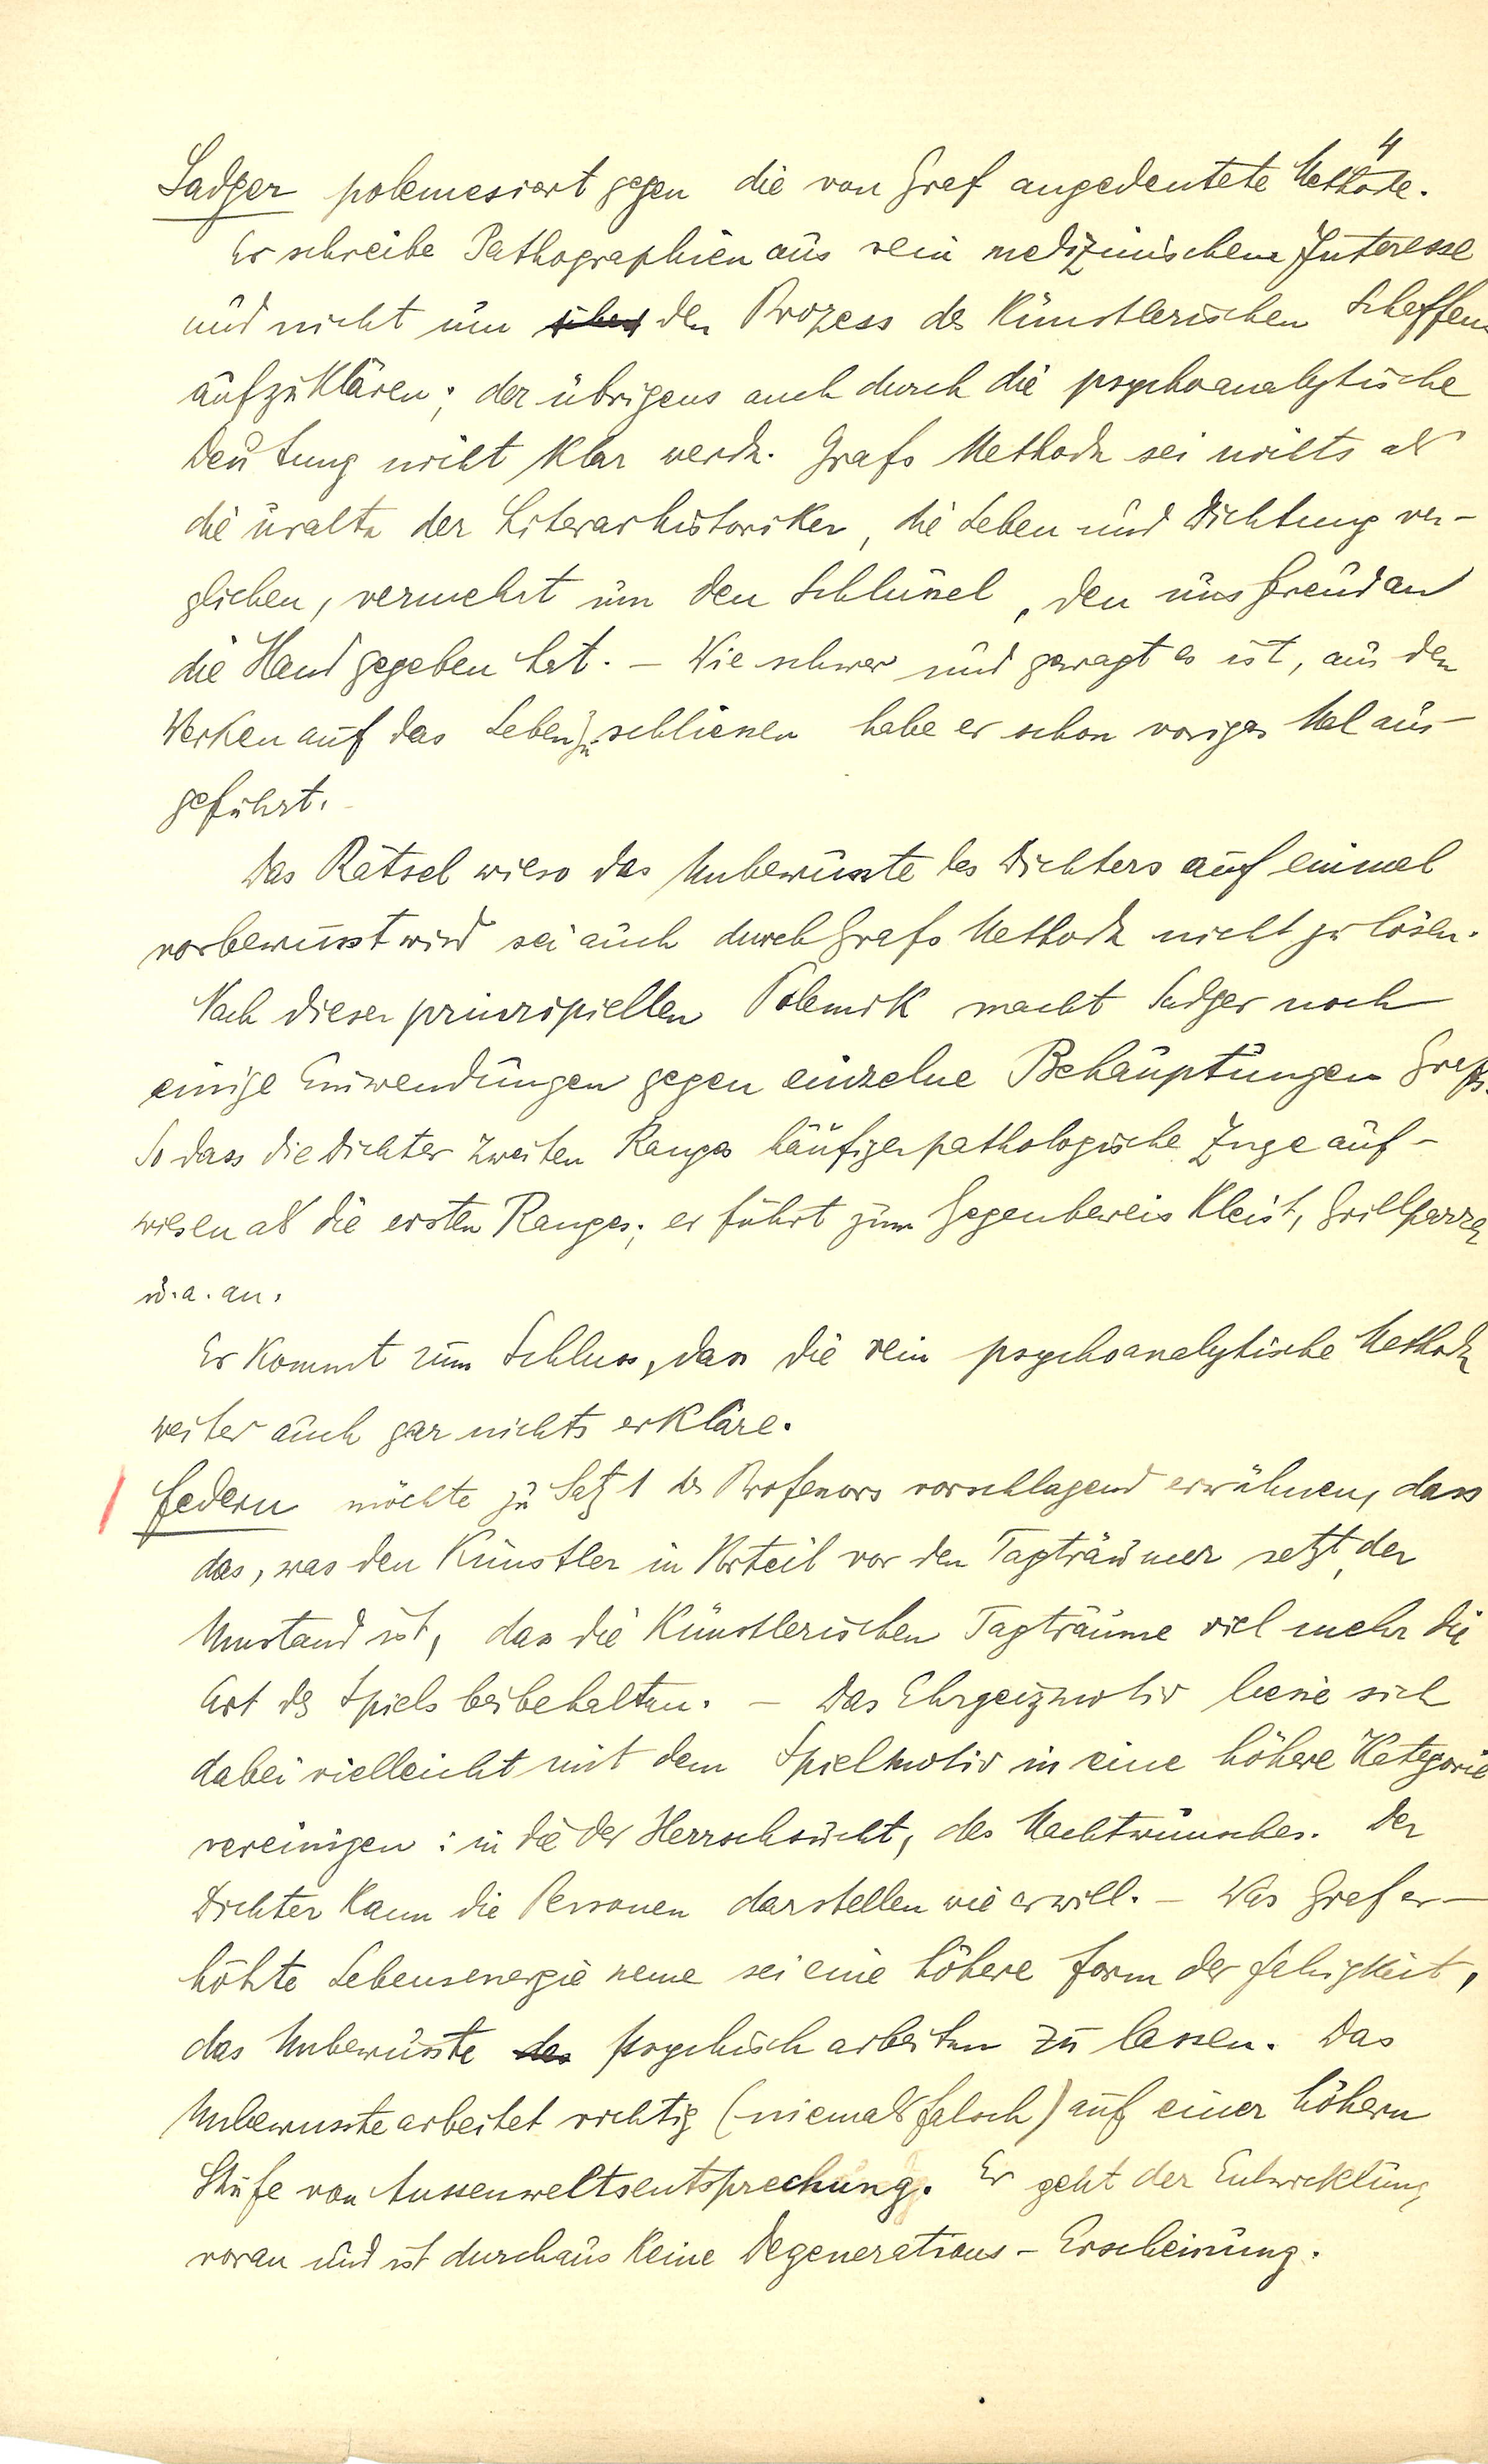 4
Sadger polemesiert gegen die von Graf angedeutete Methode.
Er schreibe Pathographien aus rein medizinischem Interesse
und nicht um den Prozess des künstlerischen Schaffens
aufzuklären; der übrigens auch durch die psychoanalytische
Deutung nicht klar werde. Grafs Methode sei nichts als
die uralte der Literarhistoriker, die Leben und Dichtung ver-
glichen, vermehrt um den Schlüssel, den uns Freud an
die Hand gegeben hat. – Wie schwer und gewagt es ist, aus den
Werken auf das Leben zu schliessen habe er schon voriges Mal aus-
geführt.
Das Rätsel wieso das Unbewusste des Dichters auf einmal
vorbewusst wird sei auch durch Grafs Methode nicht zu lösen.
Nach dieser prinzipiellen Polemik macht Sadger noch
einige Einwendungen gegen einzelne Behauptungen Grafs.
So dass die Dichter zweiten Ranges häufiger pathologische Züge auf-
wiesen als die ersten Ranges; er führt zum Gegenbeweis Kleist, Grillparzer
u. a. an.
Er kommt zum Schluss, dass die rein psychoanalytische Methode
weiter auch gar nichts erkläre.
Federn möchte zu Satz 1 des Professors vorschlagend erwähnen, dass
das, was den Künstler in Vorteil vor den Tagträumer setzt, der
Umstand ist, dass die künstlerischen Tagträume viel mehr die
Art des Spiels beibehalten. – Das Ehrgeizmotiv liesse sich
dabei vielleicht mit dem Spielmotiv in eine höhere Kategorie
vereinigen: in die der Herrschsucht, des Machtwunsches. Der
Dichter kann die Personen darstellen wie er will. – Was Graf er-
höhte Lebensenergie nenne sei eine höhere Form der Fähigkeit,
das Unbewusste psychisch arbeiten zu lassen. Das
Unbewusste arbeitet richtig (niemals falsch) auf einer höhern
Stufe von Aussenweltsentsprechung. Er geht der Entwicklung
voran und ist durchaus keine Degenerations-Erscheinung.